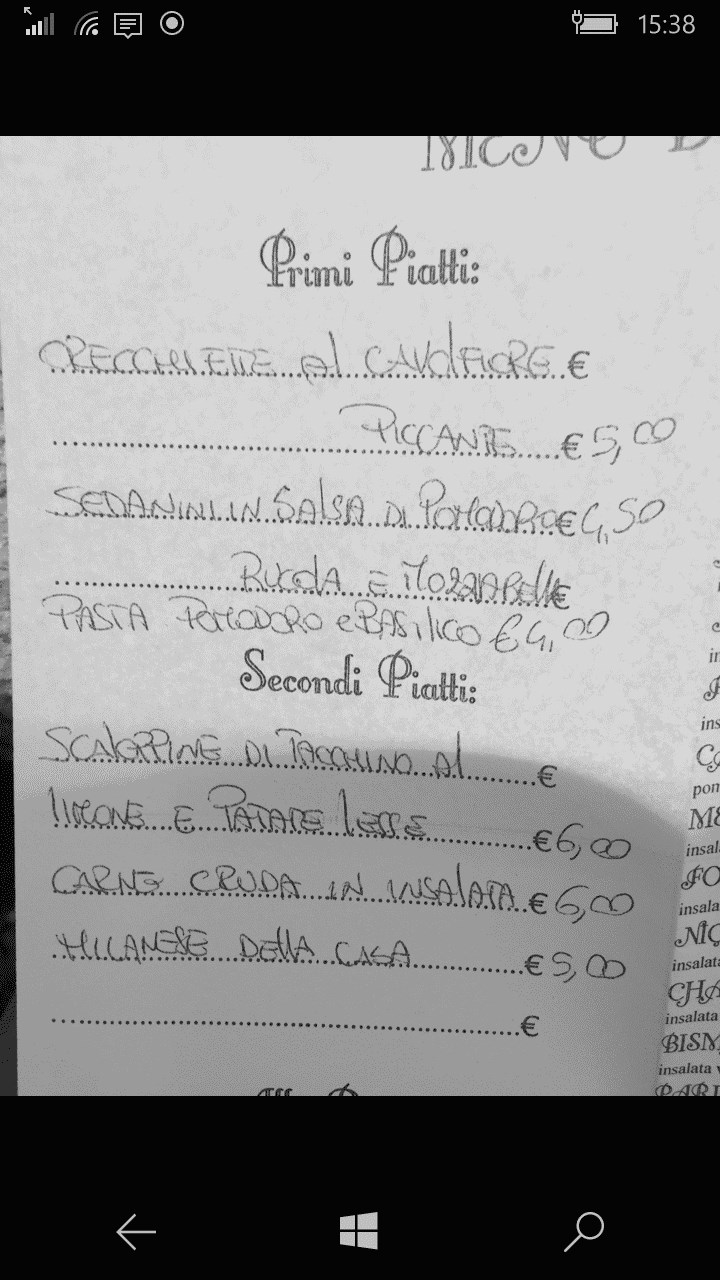 15:38
MENÙ D
Primi Piatti:
ORECCHIETTE al CAVOLFIORE €
PICCANTE € 5,00
SEDANINI IN SALSA DI POMODORO € 4,50
RUCOLA E MOZZARELLA €
PASTA POMODORO e BASILICO € 4,00
Secondi Piatti:
SCALOPPINE DI TACCHINO AL €
LIMONE E PATATE LESSE € 6,00
CARNE CRUDA IN INSALATA € 6,00
MILANESE DELLA CASA € 5,00
€
in
ins
CO
pom
ME
insala
FO
insala
NIÇ
insalata
CHA
insalata
BISM
insalata v
PARI